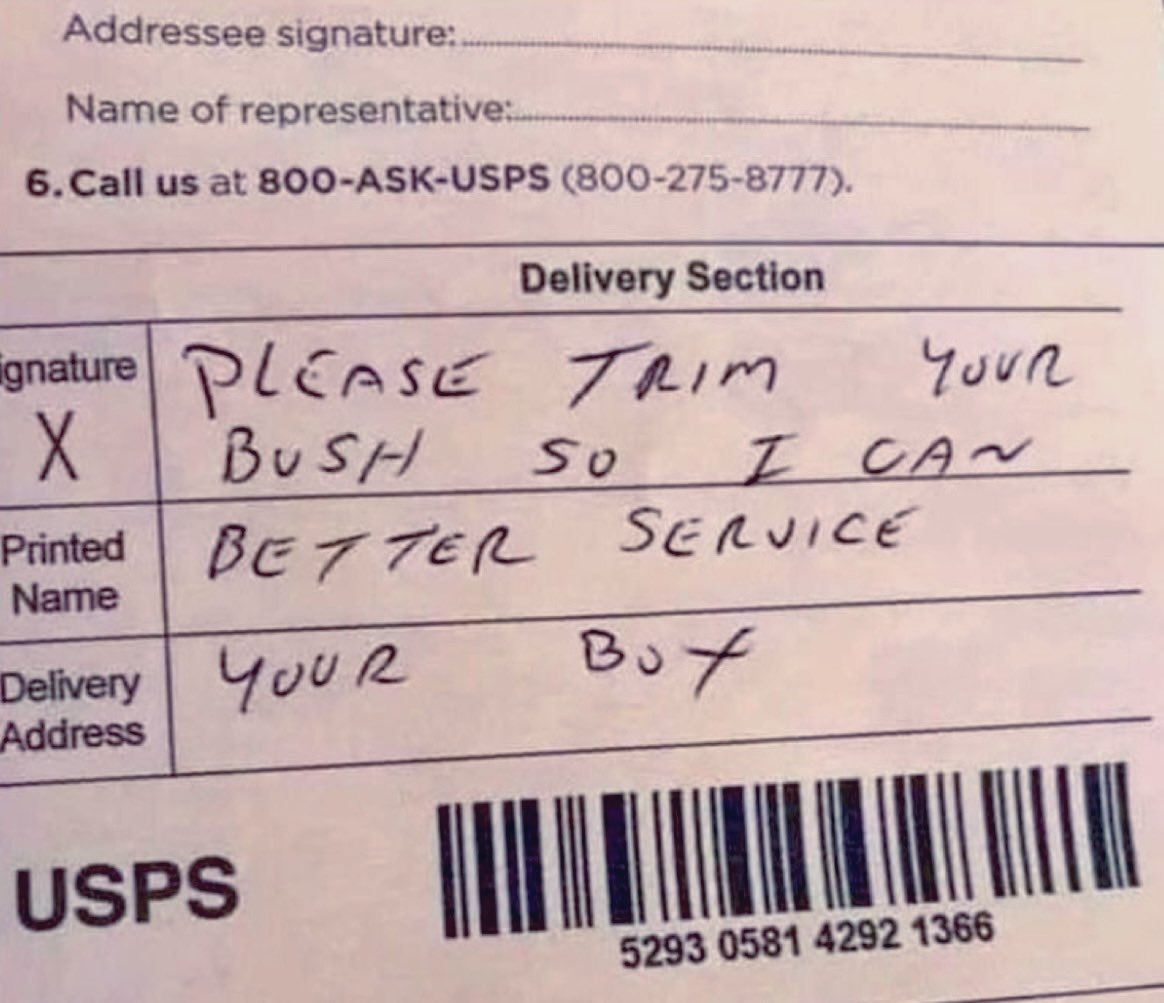 Addressee signature:
Name of representative:
6. Call us at 800-ASK-USPS (800-275-8777).
Delivery Section
ignature
X
PLEASE TRIM YOUR
BUSH SO I CAN
Printed
Name
BETTER SERVICE
Delivery
Address
YOUR BOX
USPS
5293 0581 4292 1366